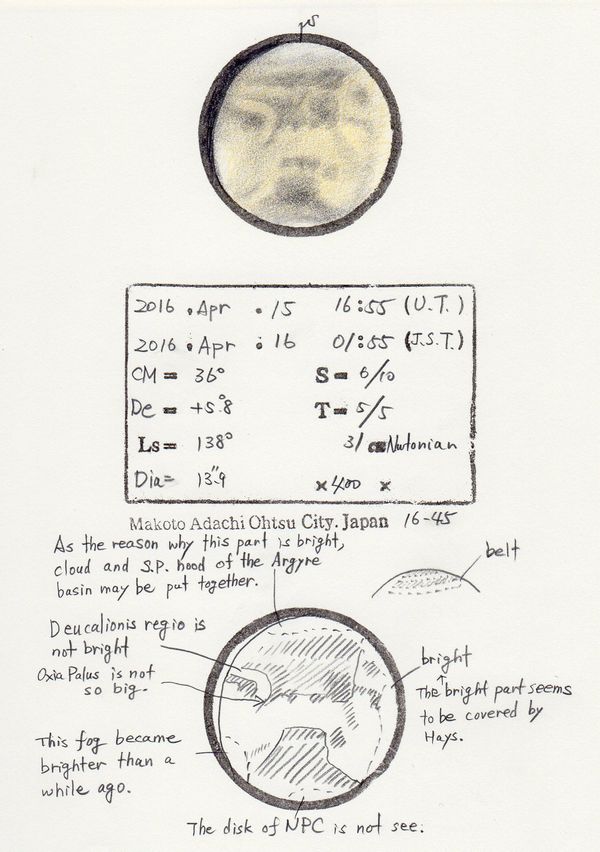 2016 . Apr . 15 16:55 (U.T.)
2016 . Apr . 16 01:55 (J.S.T.)
CM = 36° S = 6/10
De = +5°.8 T = 5/5
Ls = 138° 31 cm Nutonian
Dia = 13".9 × 400 ×
Makoto Adachi Ohtsu City. Japan 16-45
As the reason why this part is bright,
cloud and S.P. hood of the Argyre
basin may be put together.
belt
Deucalionis regio is
not bright
Oxia Palus is not
so big.
bright
The bright part seems
to be covered by
Hays.
This fog became
brighter than a
while ago.
The disk of NPC is not see.